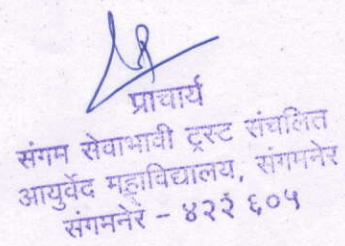 प्राचार्य
संगम सेवाभावी ट्रस्ट संचलित
आयुर्वेद महाविद्यालय, संगमनेर
संगमनेर - ४२२ ६०५